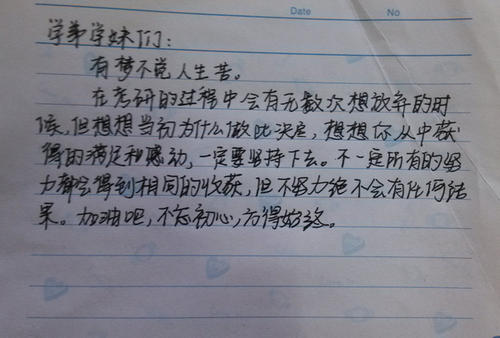 Date No
学弟学妹们：
有梦不说人生苦。
在考研的过程中会有无数次想放弃的时
候，但想想当初为什么做此决定，想想你从中获
得的满足和感动，一定要坚持下去。不一定所有的努
力都会得到相同的收获，但不努力绝不会有任何结
果。加油吧，不忘初心，方得始终。